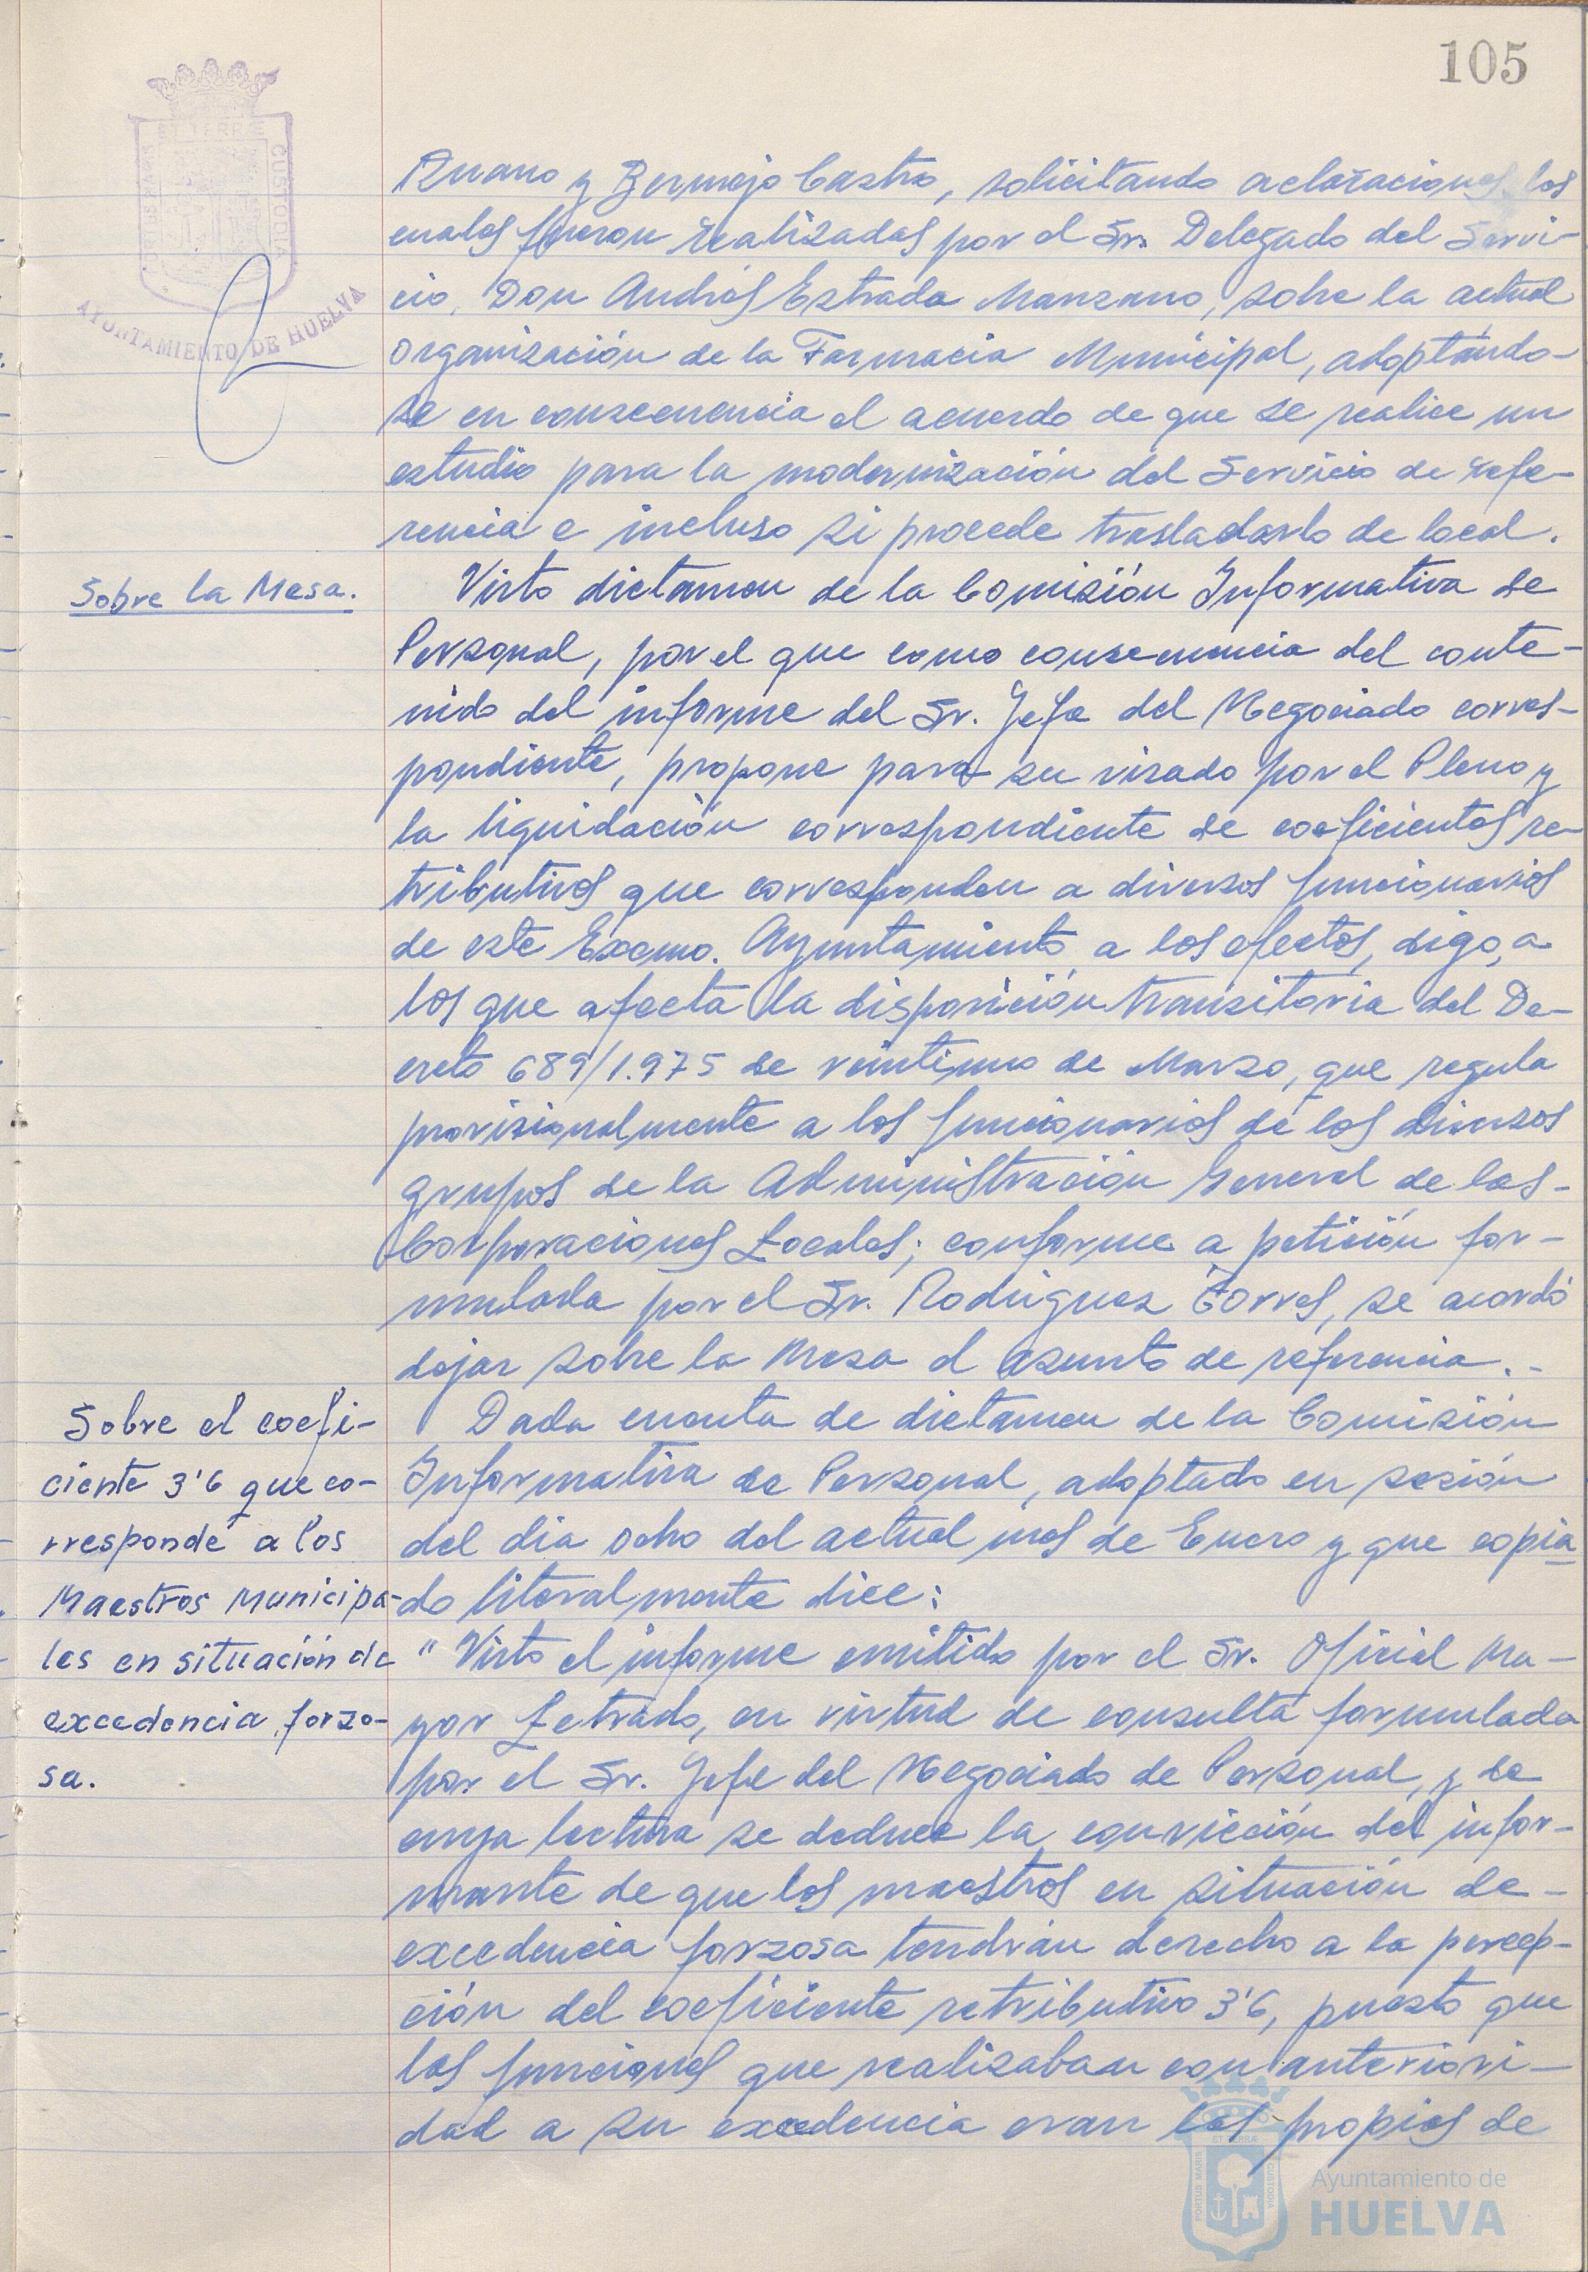 105
ET TERRÆ
PORTUS MARIS
CUSTODIA
AYUNTAMIENTO DE HUELVA
Ruano y Bermejo Castro, solicitando aclaraciones, las
cuales fueron realizadas por el Sr. Delegado del Servi-
cio, Don Andrés Estrada Manzano, sobre la actual
organización de la Farmacia Municipal, adoptándo-
se en consecuencia el acuerdo de que se realice un
estudio para la modernización del Servicio de refe-
rencia e incluso si procede trasladarlo de local.
Sobre la Mesa.
Visto dictamen de la Comisión Informativa de
Personal, por el que como consecuencia del conte-
nido del informe del Sr. Jefe del Negociado corres-
pondiente, propone para su visado por el Pleno y
la liquidación correspondiente de coeficientes re-
tributivos que corresponden a diversos funcionarios
de este Excmo. Ayuntamiento a los efectos, digo, a
los que afecta la disposición transitoria del De-
creto 689/1.975 de veintiuno de Marzo, que regula
provisionalmente a los funcionarios de los diversos
grupos de la Administración General de las-
Corporaciones Locales; conforme a petición for-
mulada por el Sr. Rodriguez Torres, se acordó
dejar sobre la Mesa el asunto de referencia.-
Sobre el coefi-
ciente 3'6 que co-
rresponde a los
Maestros Municipa-
les en situación de
excedencia forzo-
sa.
Dada cuenta de dictamen de la Comisión
Informativa de Personal, adoptado en sesión
del dia ocho del actual mes de Enero y que copia
do literalmente dice:
" Visto el informe emitido por el Sr. Oficial Ma-
yor Letrado, en virtud de consulta formulada
por el Sr. Jefe del Negociado de Personal, y de
cuya lectura se deduce la convicción del infor-
mante de que los maestros en situación de-
excedencia forzosa tendrán derecho a la percep-
ción del coeficiente retributivo 3'6, puesto que
las funciones que realizaban con anteriori-
dad a su excedencia eran las propias de
PORTUS MARIS
ET TERRÆ
CUSTODIA
Ayuntamiento de
HUELVA